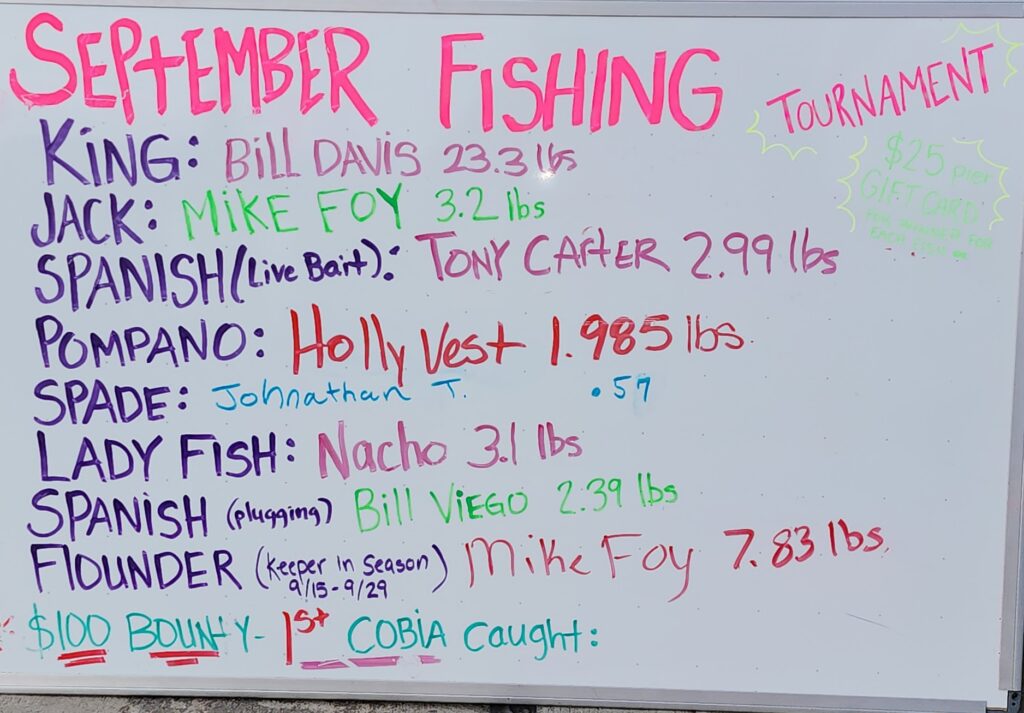 SEPTEMBER FISHING TOURNAMENT
$25 pier
GIFT CARD
FOR WINNER FOR
EACH FISH
KiNG: Bill DAVIS 23.3 lbs
JACK: MiKE FOY 3.2 lbs
SPANISH (Live Bait): TONY CARTER 2.99 lbs
POMPANO: Holly Vest 1.985 lbs.
SPADE: Johnathan T. .57
LADY FISH: Nacho 3.1 lbs
SPANiSH (plugging) Bill ViEGO 2.39 lbs
FlOUNDER (Keeper In Season) Mike Foy 7.83 lbs.
9/15-9/29
$100 BOUNTY- 1st COBiA Caught: